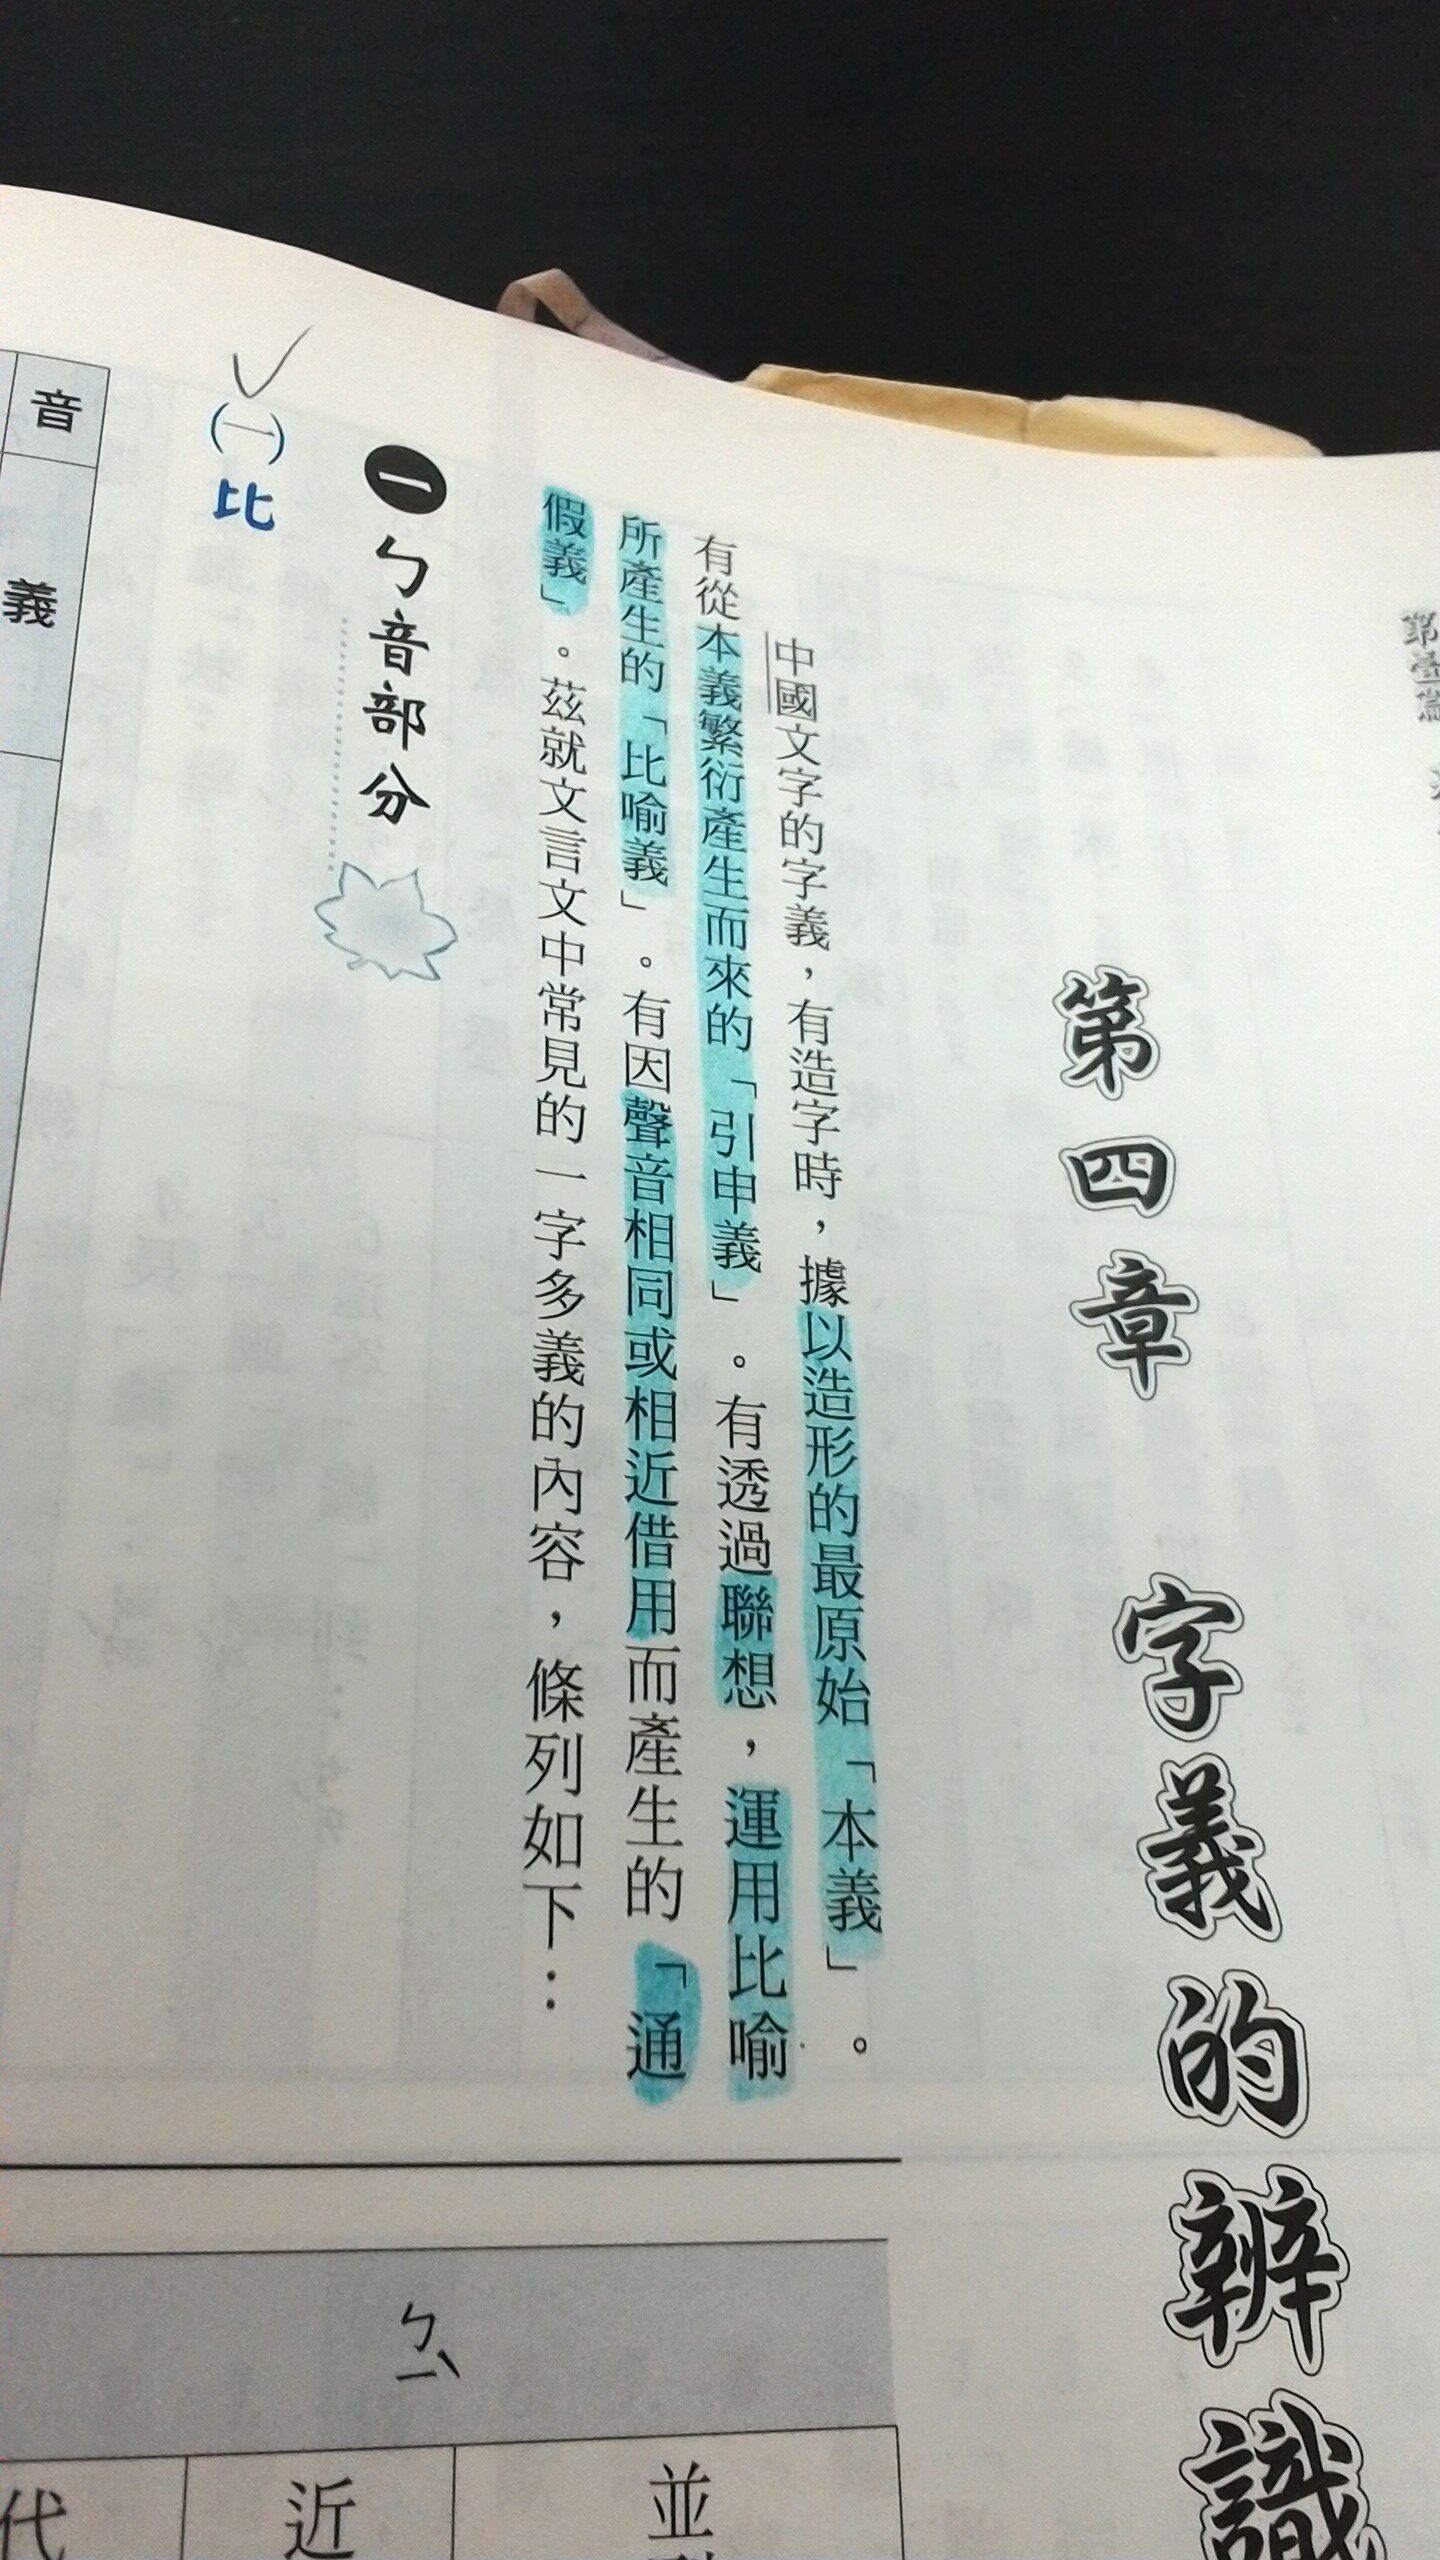 第四章 字義的辨識
中國文字的字義，有造字時，據以造形的最原始「本義」。
有從本義繁衍產生而來的「引申義」。有透過聯想，運用比喻
所產生的「比喻義」。有因聲音相同或相近借用而產生的「通
假義」。茲就文言文中常見的一字多義的內容，條列如下：
一 ㄅ音部分
(一)比
音
義
ㄅㄧˋ
並
近
代